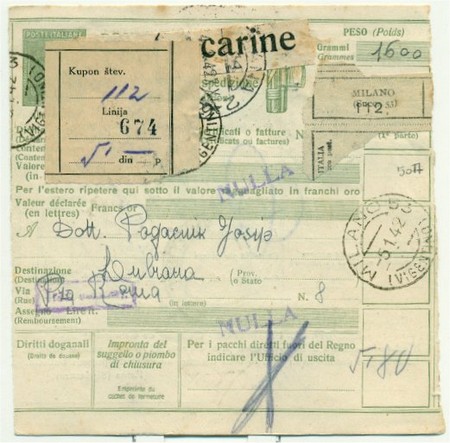 POSTE ITALIANE
carine
PESO (Poids)
Grammi
Grammes
1600
Kupon štev.
112
Linija
674
din P.
MILANO
(Succ. 53)
112.
ITALIA
icati o fatture
cats ou factures)
N.
(1ª parte)
50
NULLA
Per l'estero ripetere qui sotto il valore ragguagliato in franchi oro
Valeur déclarée
(en lettres)
Francs or
A Dott. Pogacnik Josip
Destinazione
(Destination)
Lubiana
(Prov.
o Stato
Via
(Rue)
N. 8
Assegno Lire it.
(Remboursement)
(in lettere)
MILANO 53
5.1.42
NULLA
Diritti doganali
(Droits de douane)
Impronta del
suggello o piombo
di chiusura
Empreinte du
cachet de fermeture
Per i pacchi diretti fuori del Regno
indicare l'Ufficio di uscita